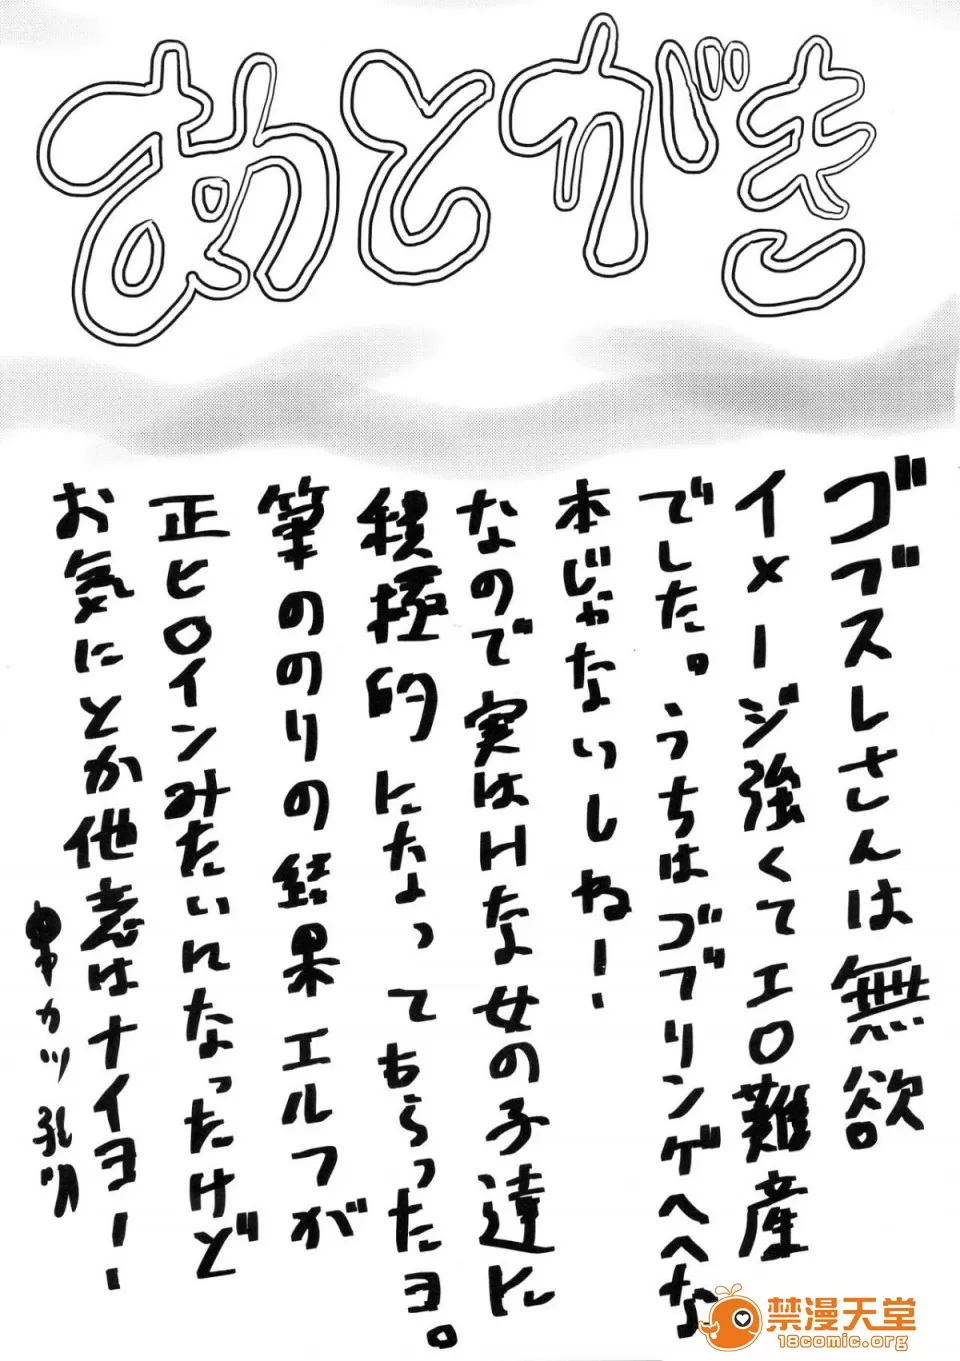 あとがき
ゴブスレさんは無欲
イメージ強くてエロ難産
でした。うちはゴブリンゲヘヘな
本じゃないしね！
なので実はHな女の子達に
積極的になってもらったヨ。
筆ののりの結果エルフが
正ヒロインみたいになったけど
お気にとか他意はナイヨー！
串カツ孔明
禁漫天堂
18comic.org